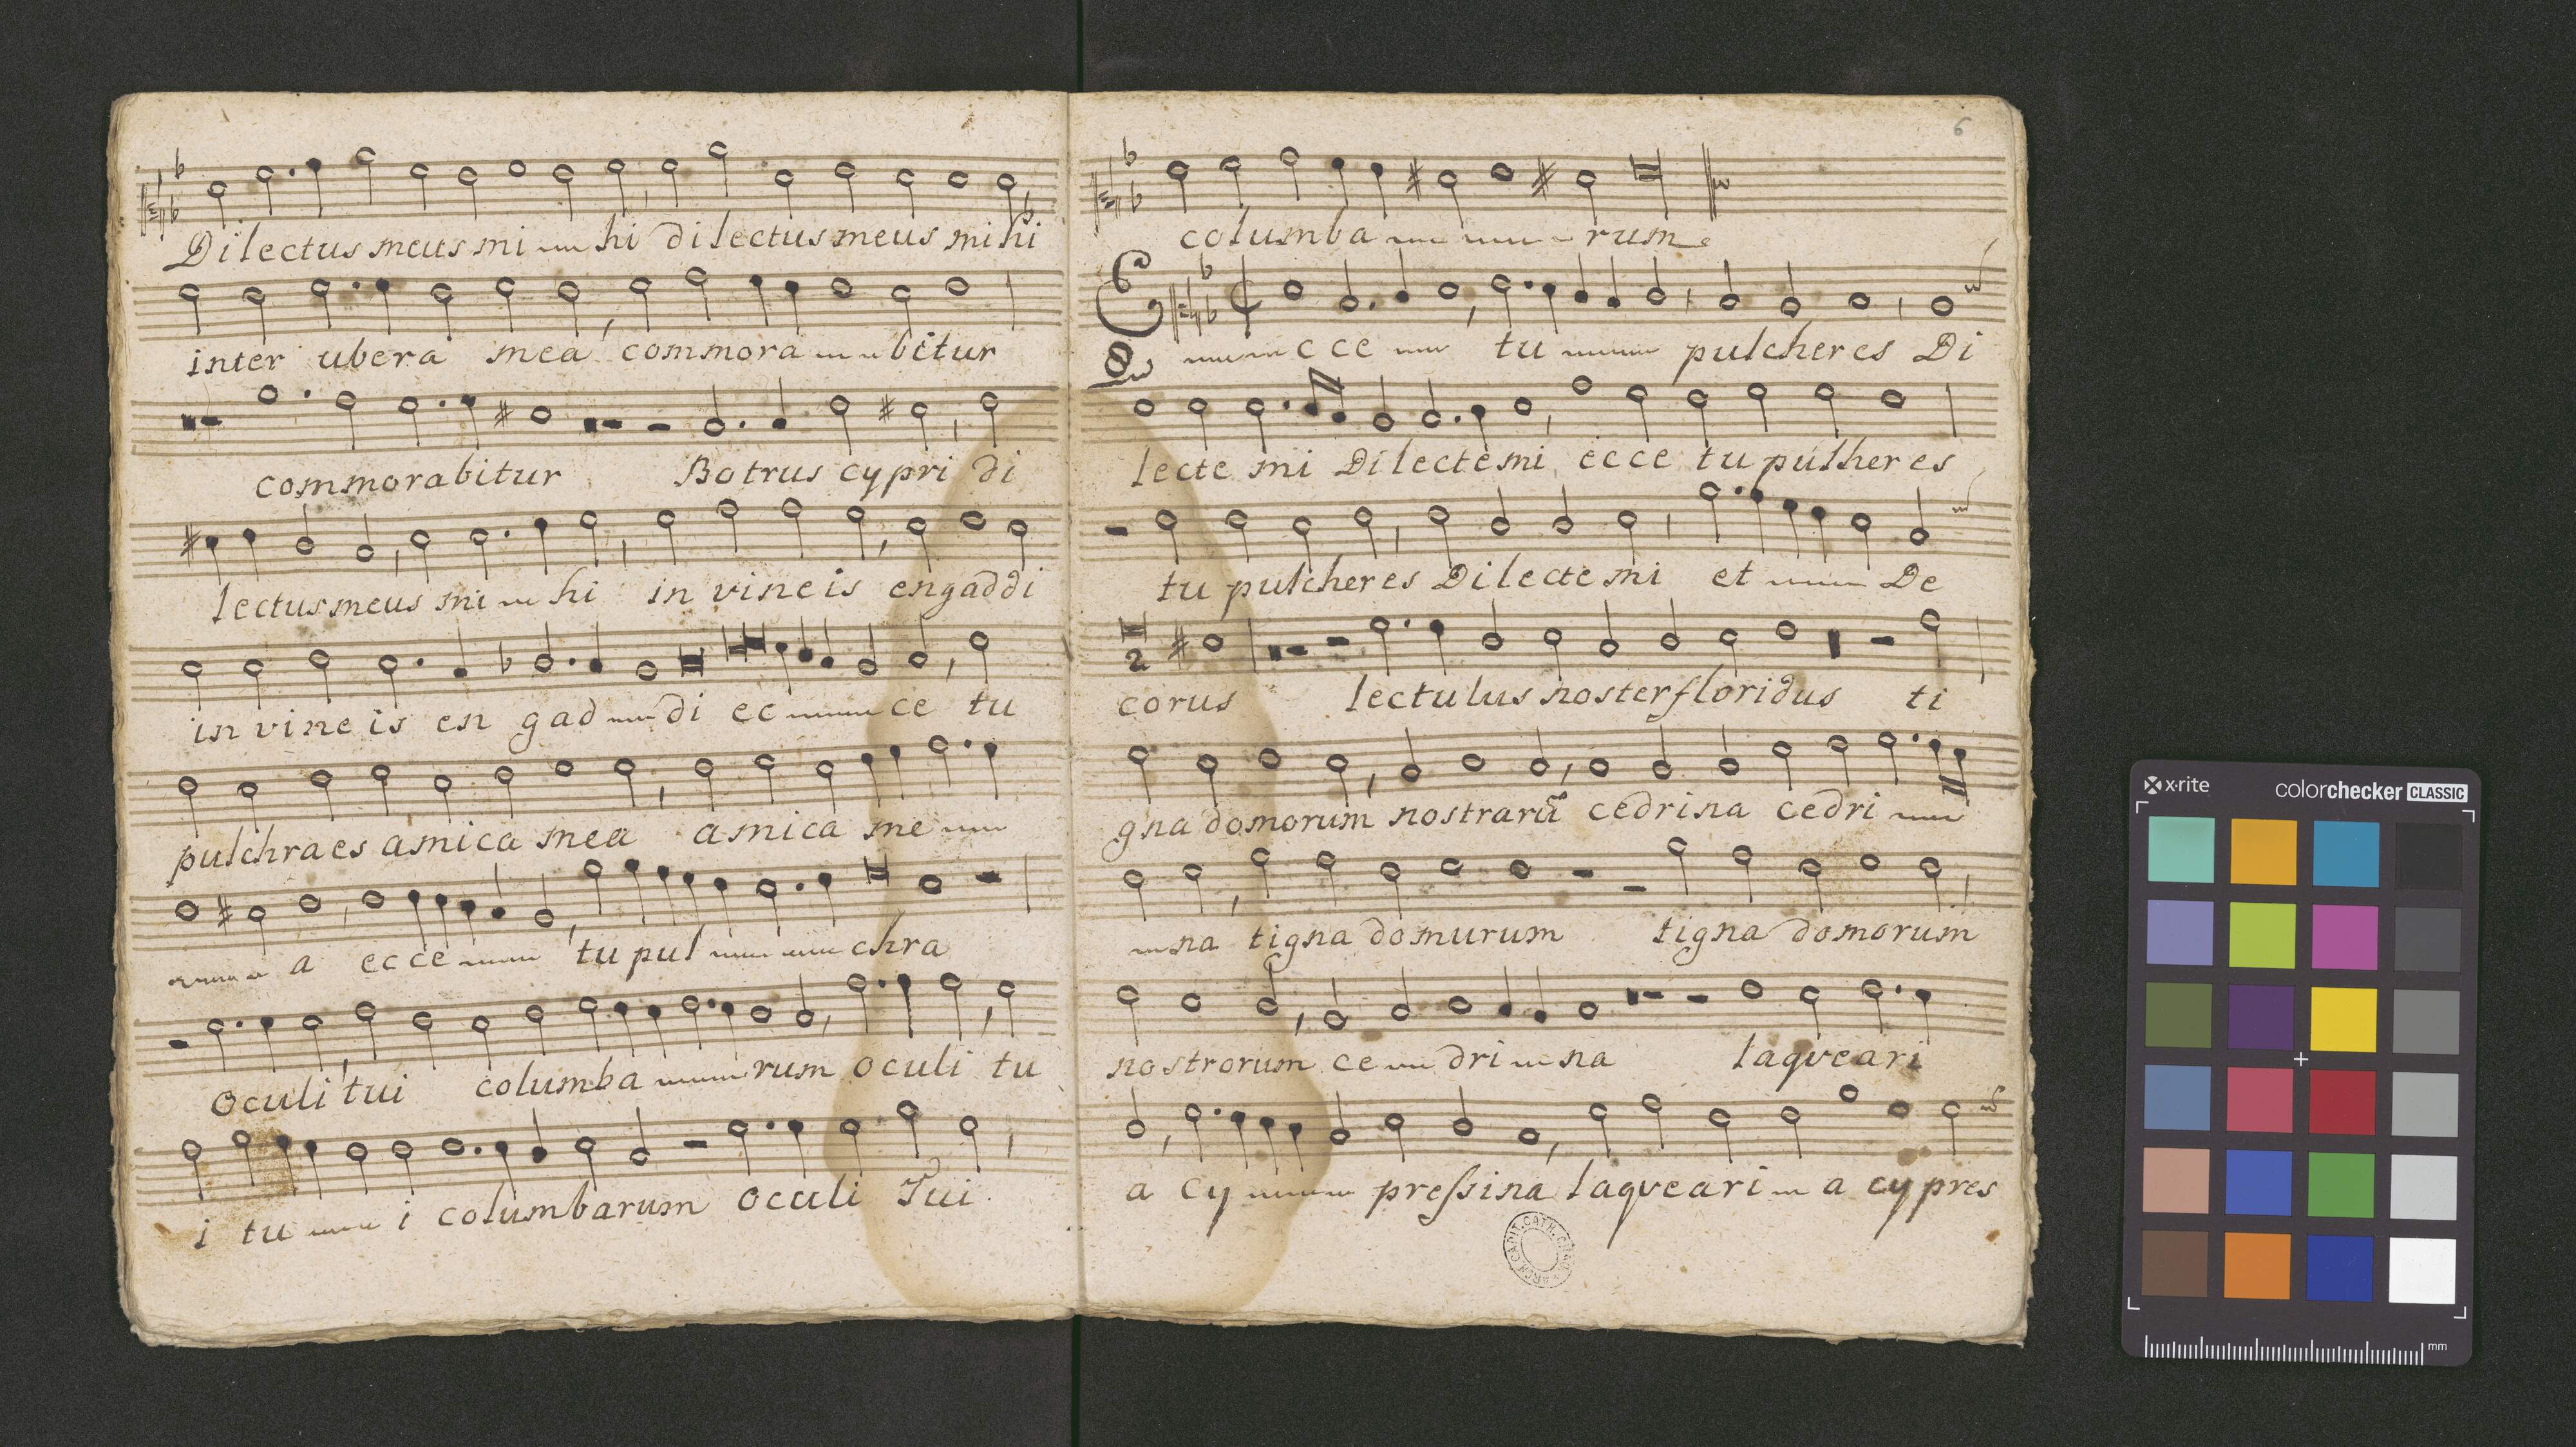 Dilectus meus mi hi dilectus meus mihi
inter ubera mea commora bitur
commorabitur Botrus cypri di
lectus meus mi hi in vineis engaddi
in vineis en gad di ec ce tu
pulchra es amica mea amica me
a ecce tu pul chra
Oculi tui columba rum oculi tu
i tu i columbarum oculi Tui
6
columba rum
E cce tu pulcher es Di
8
lecte mi Dilecte mi ecce tu pulher es
tu pulcher es Dilecte mi et De
2
corus lectulus noster floridus ti
gna domorum nostrarũ cedrina cedri
na tigna domurum tigna domorum
nostrorum ce dri na laqveari
a cy preſsina laqveari a cypres
x-rite
colorchecker CLASSIC
mm